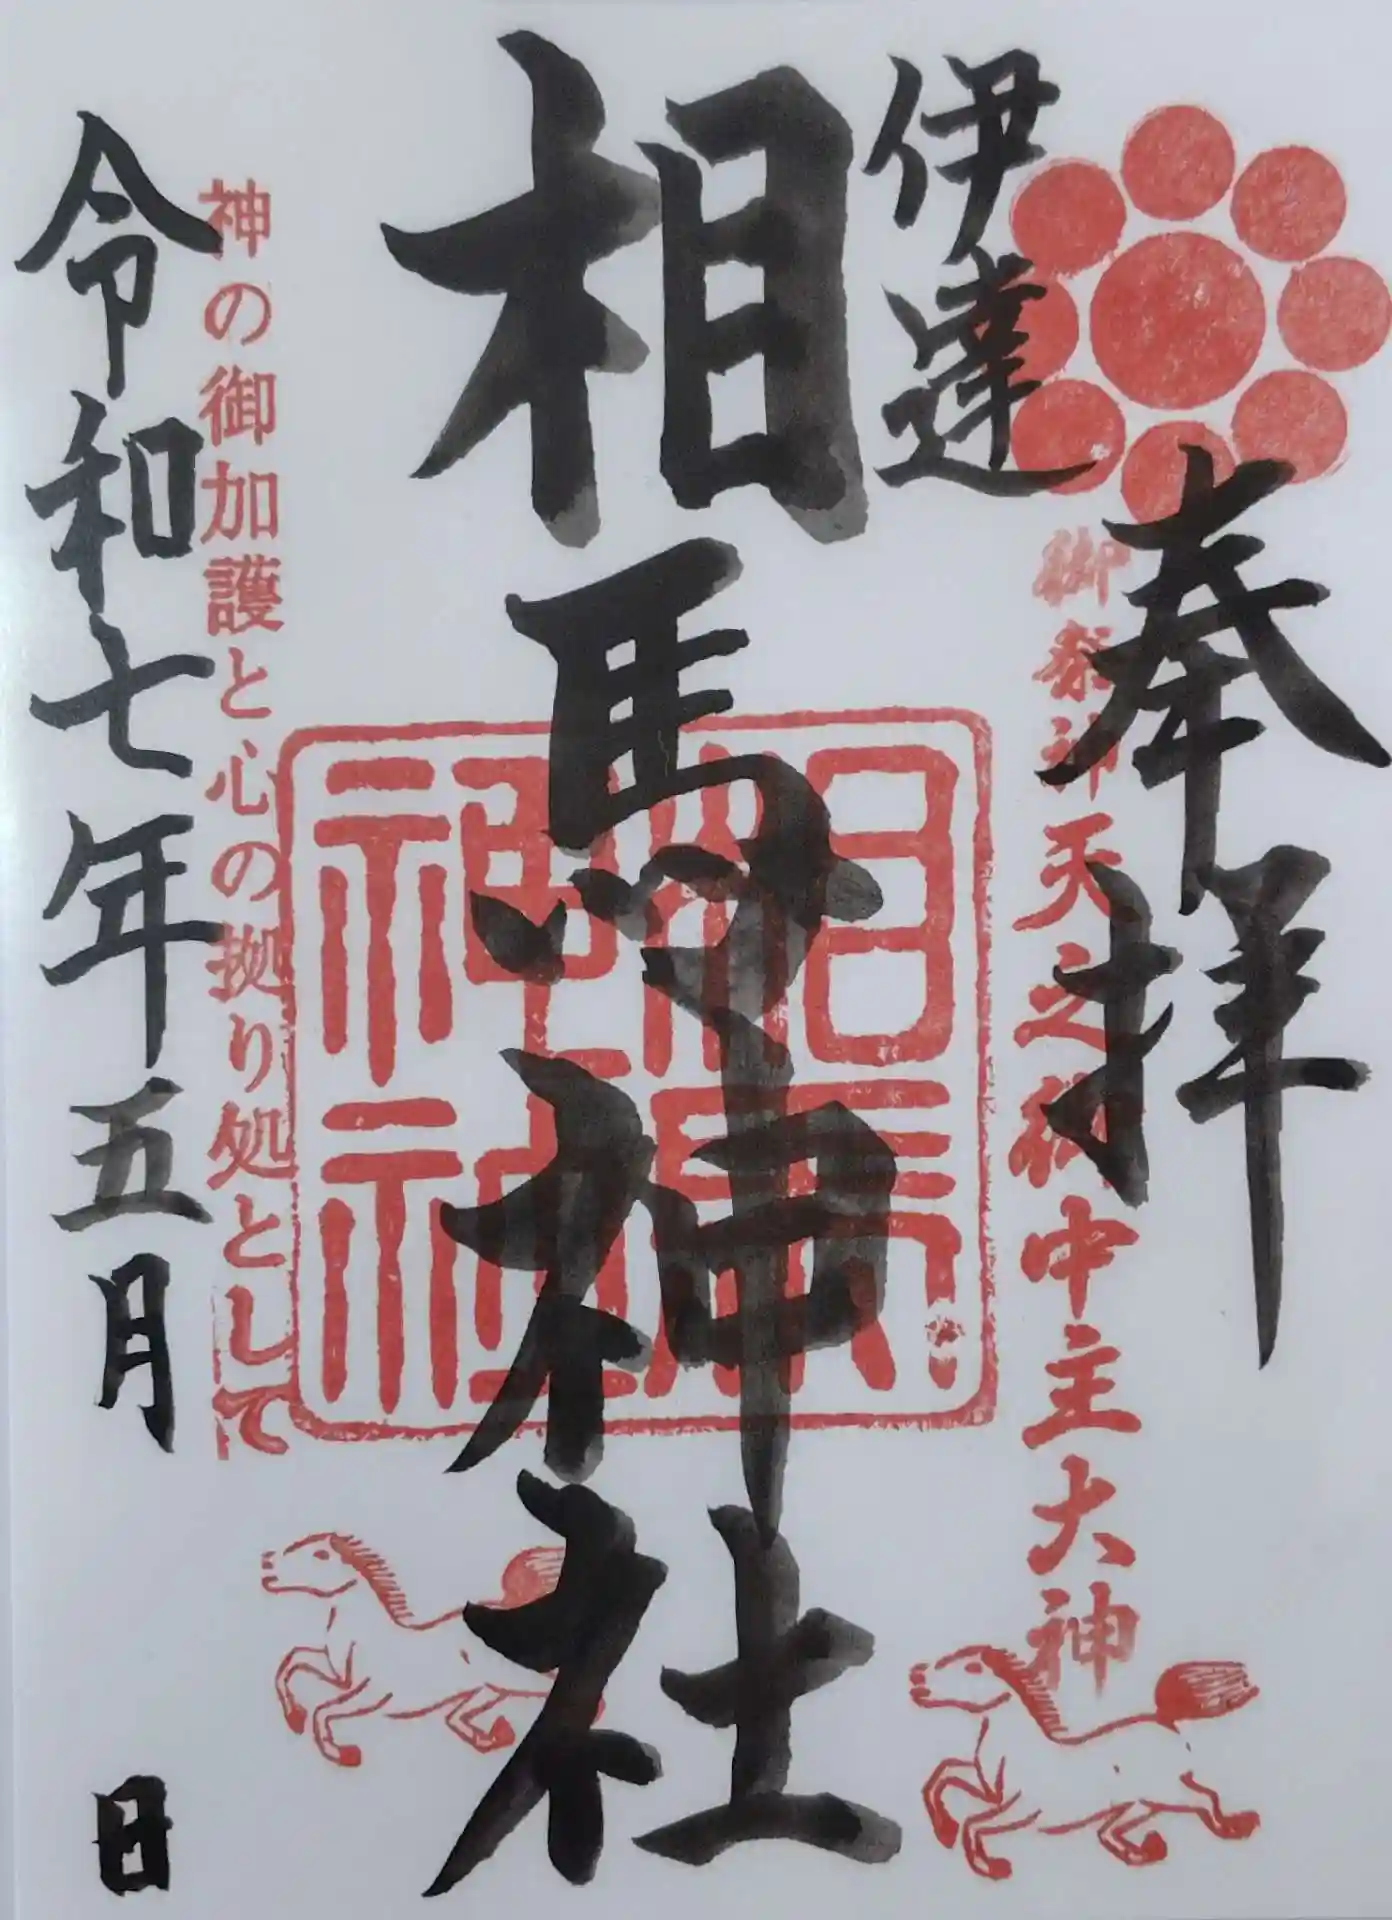 奉拝
御祭神天之御中主大神
伊達
相馬神社
相馬
神社
神社
神の御加護と心の拠り処として
令和七年五月 日